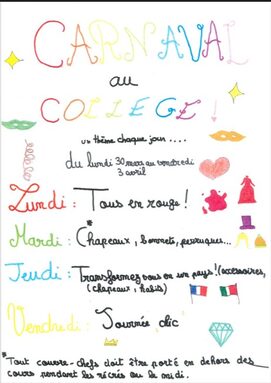 CARNAVAL
au
COLLEGE !
un thème chaque jour ....
du lundi 30 mars au vendredi
3 avril
Lundi : Tous en rouge !
Mardi : *Chapeaux, bonnets, perruques...
Jeudi : Transformez vous en son pays ! (accessoires,
(chapeaux, habits)
Vendredi : Journée chic
*Tout couvre-chefs doit être porté en dehors des
cours pendant les récrés ou le midi.